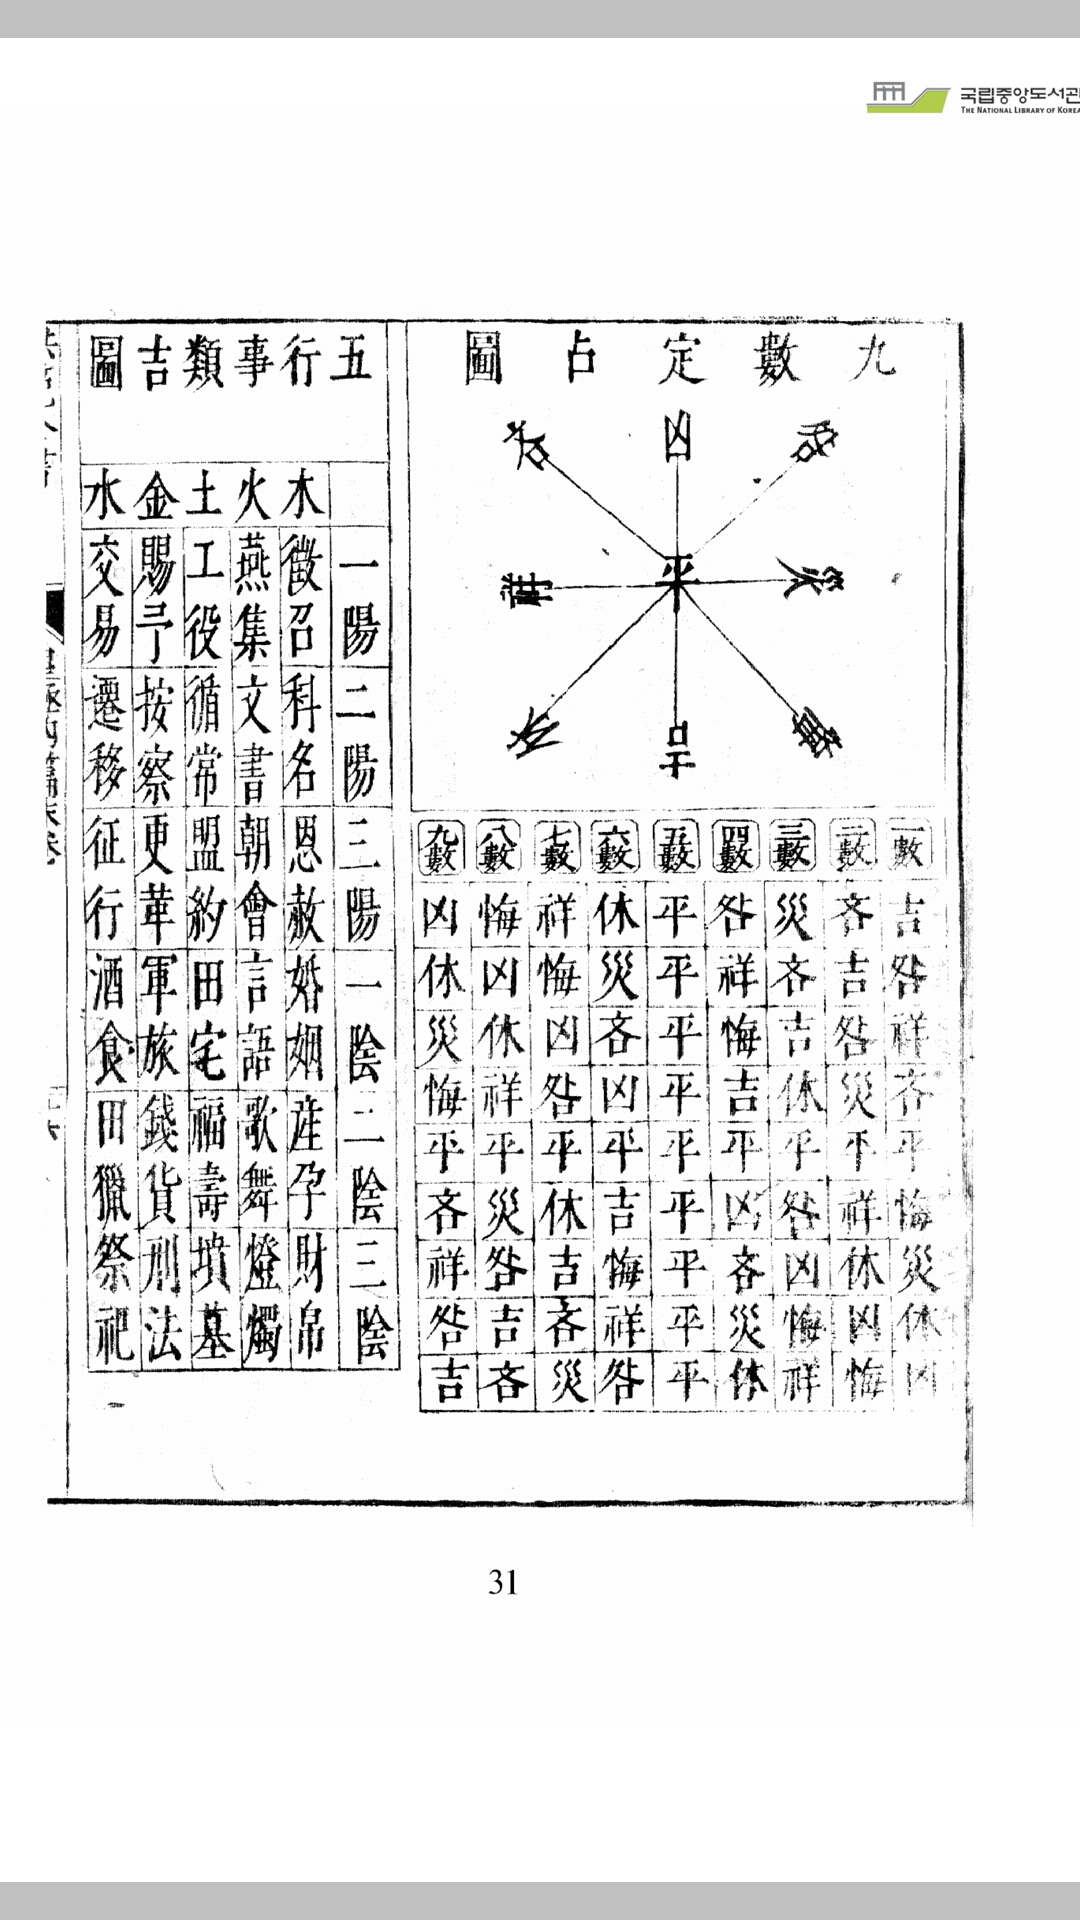 국립중앙도서관
THE NATIONAL LIBRARY OF KOREA
九數定占圖
凶
咎
災
平
祥
休
吉
悔
吝
一數 二數 三數 四數 五數 六數 七數 八數 九數
吉 吝 災 咎 平 休 祥 悔 凶
咎 吉 吝 祥 平 災 悔 凶 休
祥 咎 吉 悔 平 吝 凶 休 災
吝 災 休 吉 平 凶 咎 祥 悔
平 平 平 平 平 平 平 平 平
悔 祥 咎 凶 平 吉 休 災 吝
災 休 凶 吝 平 悔 吉 咎 祥
休 凶 悔 災 平 祥 吝 吉 咎
凶 悔 祥 休 平 咎 災 吝 吉
五行事類吉圖
一陽 二陽 三陽 一陰 二陰 三陰
木 徵召 科名 恩赦 婚姻 産孕 財帛
火 燕集 文書 朝會 言語 歌舞 燈燭
土 工役 循常 盟約 田宅 福壽 墳墓
金 賜予 按察 更革 軍旅 錢貨 刑法
水 交易 遷移 征行 酒食 田獵 祭祀
31